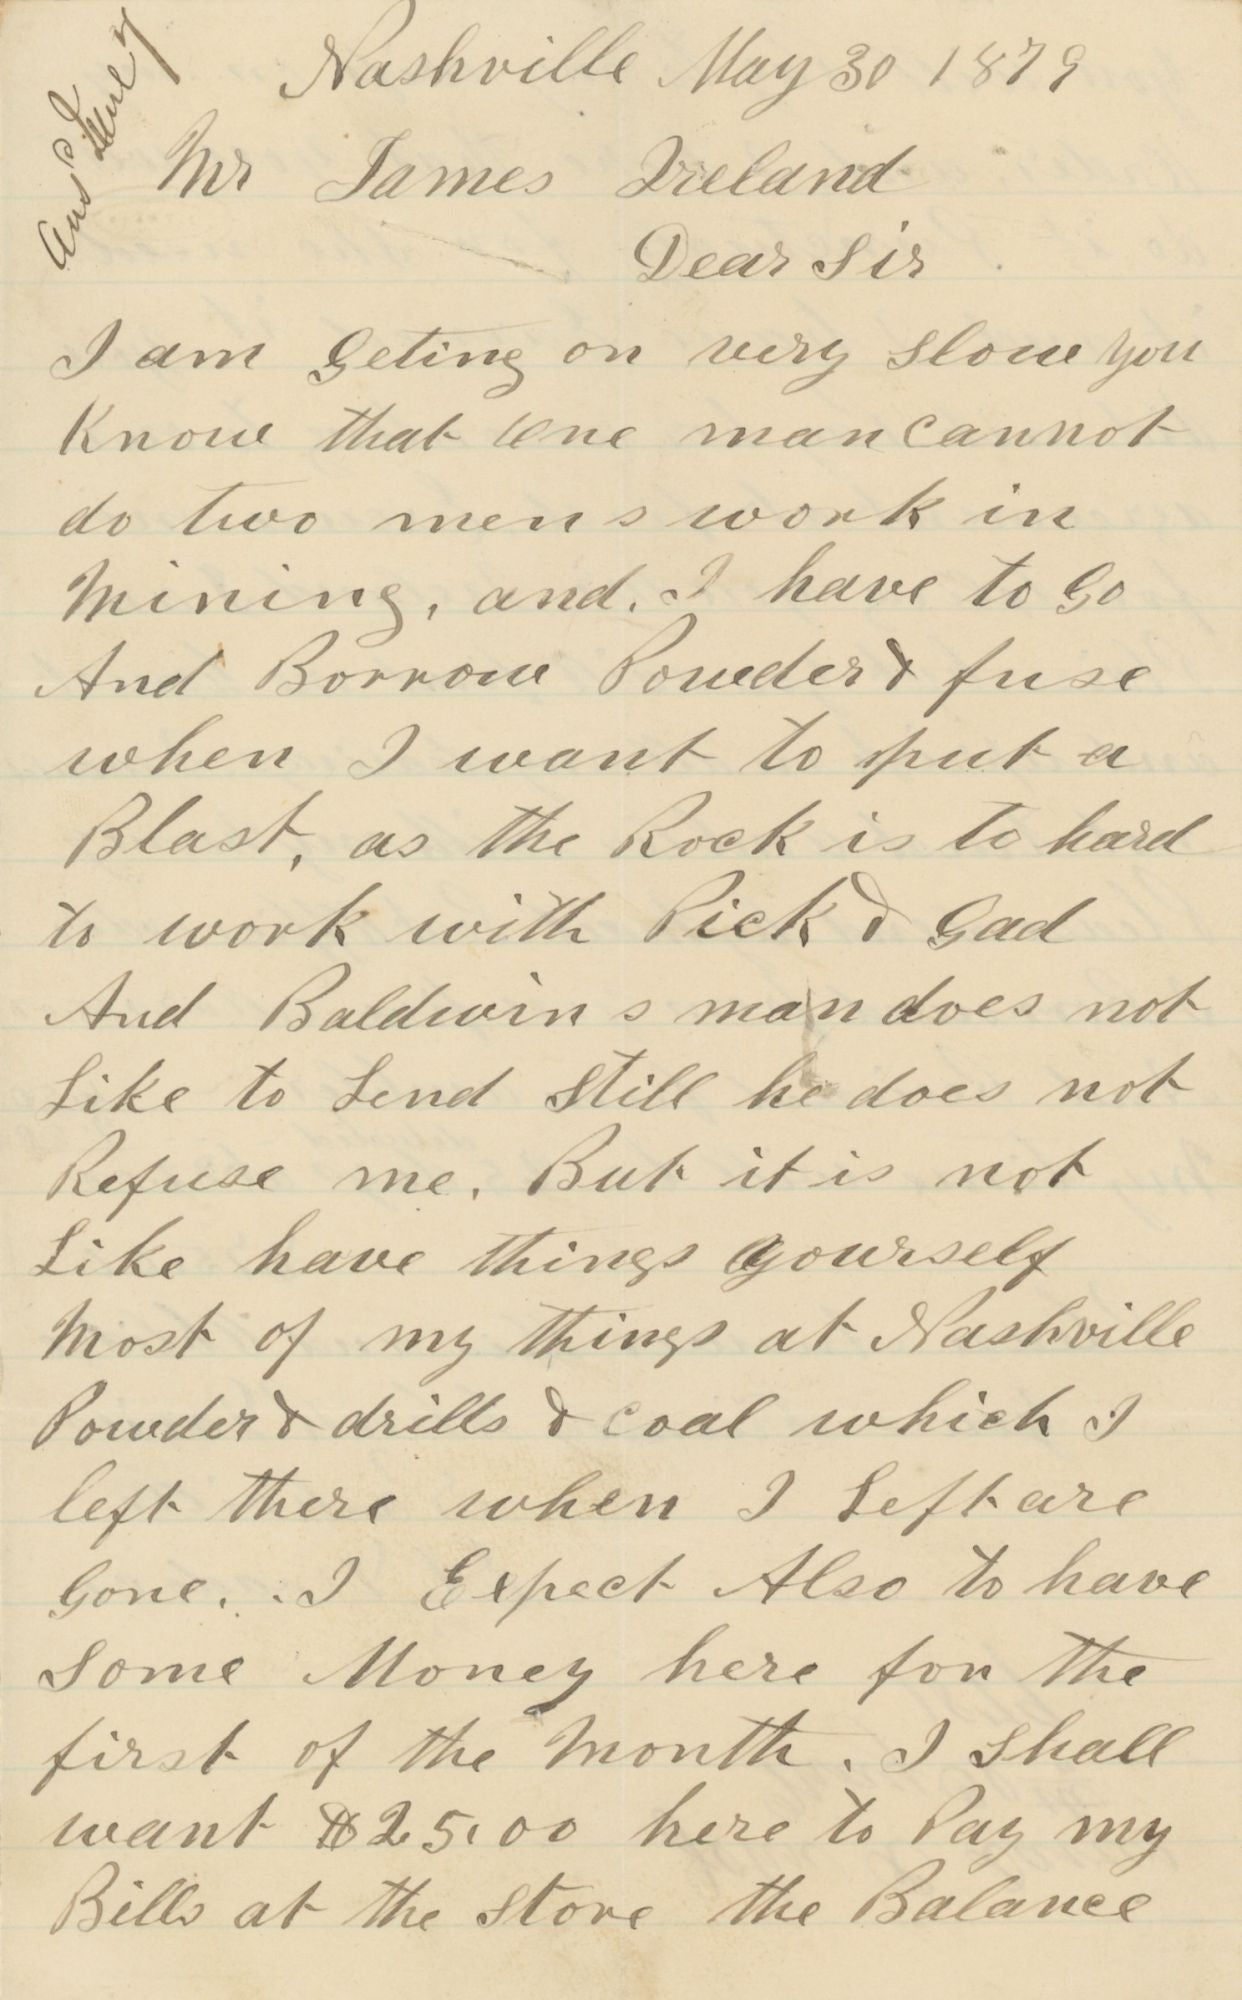 Ansd June 7
Nashville May 30 1879
Mr James Ireland
Dear Sir
I am Geting on very Slow you
Know that one man cannot
do two mens work in
Mining, and. I have to Go
And Borrow Powder & fuse
when I want to put a
Blast, as the Rock is to hard
to work with Pick & Gad
And Baldwins man does not
Like to Lend Still he does not
Refuse me. But it is not
Like have things yourself
Most of my things at Nashville
Powder & drills & coal which I
left there when I Left are
Gone. . I Expect Also to have
Some Money here for the
first of the Month. I Shall
want $25.00 here to Pay my
Bills at the Store the Balance